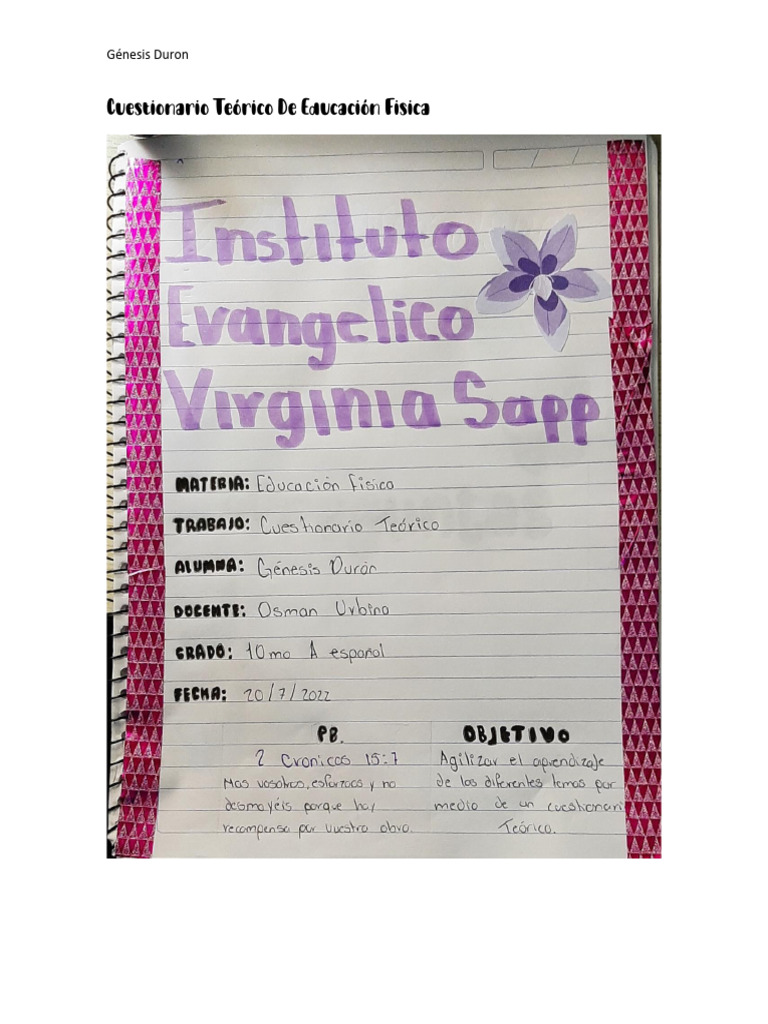 Génesis Duron
Cuestionario Teórico De Educación Fisica
Instituto
Evangelico
Virginia Sapp
MATERIA: Educación Fisica
TRABAJO: Cuestionario Teórico
ALUMNA: Génesis Durón
DOCENTE: Osman Urbina
GRADO: 10mo A español
FECHA: 20/7/2022
PB.
2 Cronicas 15:7
Mas vosotros, esforzaos y no
desmayéis porque hay
recompensa por vuestra obra.
OBJETIVO
Agilizar el aprendizaje
de los diferentes temas por
medio de un cuestionari
Teórico.